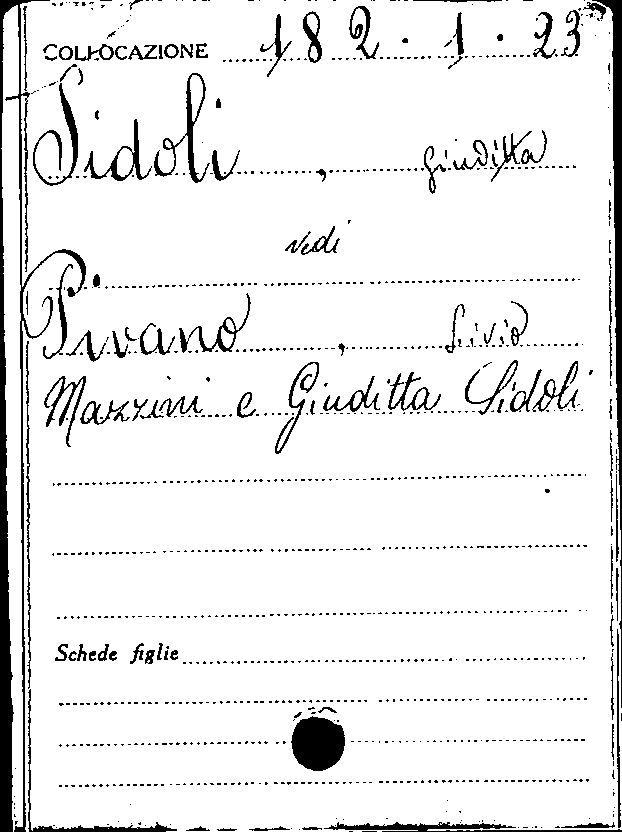 COLLOCAZIONE 182.1.23
Sidoli, Giuditta
vedi
Pivano, Livio
Mazzini e Giuditta Sidoli
Schede figlie